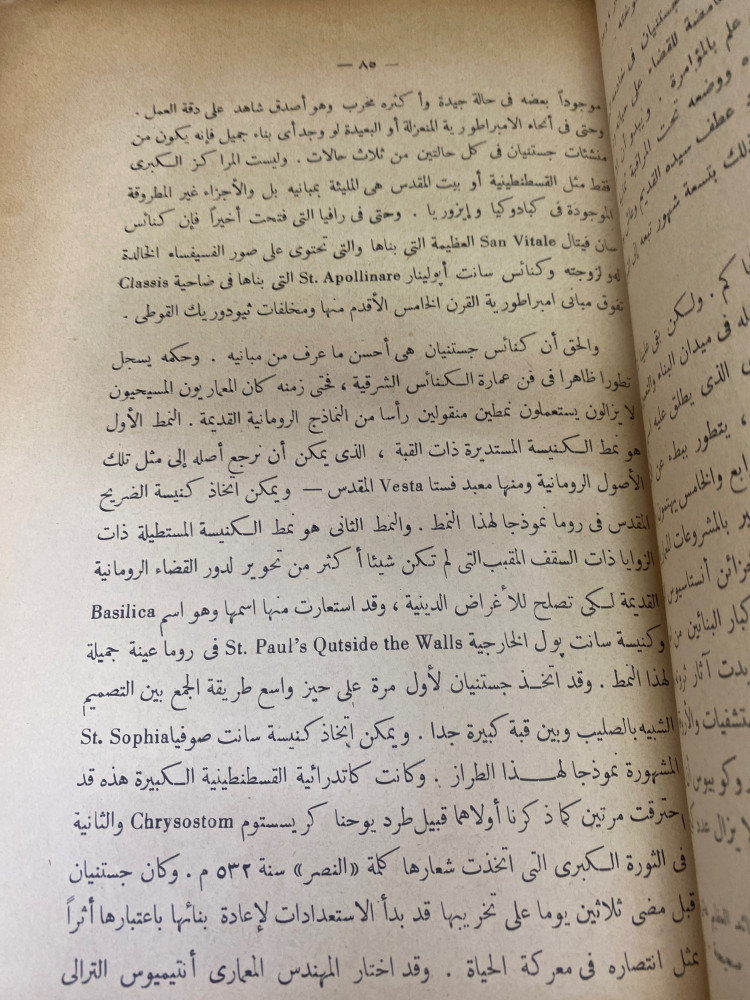 — ٨٥ —
موجوداً بعضه فى حالة جيدة وأكثره مخرب وهو أصدق شاهد على دقة العمل .
وحتى فى أنحاء الامبراطورية المنعزلة أو البعيدة لو وجد أى بناء جميل فإنه يكون من
منشئات جستنيان فى كل حالتين من ثلاث حالات . وليست المراكز الكبرى
فقط مثل القسطنطينية أو بيت المقدس هى المليئة بمبانيه بل والأجزاء غير المطروقة
الموجودة فى كبادوكيا وإيزوريا . وحتى فى رافيا التى فتحت أخيراً فإن كنائس
سان فيتال San Vitale العظيمة التى بناها والتى تحتوى على صور الفسيفساء الخالدة
له ولزوجته وكنائس سانت أپولينار St. Apollinare التى بناها فى ضاحية Classis
تفوق مبانى امبراطورية القرن الخامس الأقدم منها ومخلفات ثيودوريك القوطى .
والحق أن كنائس جستنيان هى أحسن ما عرف من مبانيه . وحكمه يسجل
تطورا ظاهرا فى فن عمارة الكنائس الشرقية ، فحتى زمنه كان المعماريون المسيحيون
لا يزالون يستعملون نمطين منقولين رأسا من النماذج الرومانية القديمة . النمط الأول
هو نمط الكنيسة المستديرة ذات القبة ، الذى يمكن أن نرجع أصله إلى مثل تلك
الأصول الرومانية ومنها معبد فستا Vesta المقدس — ويمكن اتخاذ كنيسة الضريح
المقدس فى روما نموذجا لهذا النمط . والنمط الثانى هو نمط الكنيسة المستطيلة ذات
الزوايا ذات السقف المقبب التى لم تكن شيئا أكثر من تحوير لدور القضاء الرومانية
القديمة لكى تصلح للأغراض الدينية ، وقد استعارت منها اسمها وهو اسم Basilica
وكنيسة سانت پول الخارجية St. Paul's Qutside the Walls فى روما عينة جميلة
لهذا النمط . وقد اتخذ جستنيان لأول مرة على حيز واسع طريقة الجمع بين التصميم
الشبيه بالصليب وبين قبة كبيرة جدا . ويمكن اتخاذ كنيسة سانت صوفيا St. Sophia
المشهورة نموذجا لهذا الطراز . وكانت كاتدرائية القسطنطينية الكبيرة هذه قد
احترقت مرتين كما ذكرنا أولاهما قبيل طرد يوحنا كريسستوم Chrysostom والثانية
فى الثورة الكبرى التى اتخذت شعارها كلمة «النصر» سنة ٥٣٢ م . وكان جستنيان
قبل مضى ثلاثين يوما على تخريبها قد بدأ الاستعدادات لإعادة بنائها باعتبارها أثراً
يمثل انتصاره فى معركة الحياة . وقد اختار المهندس المعمارى أنتيميوس الترالى